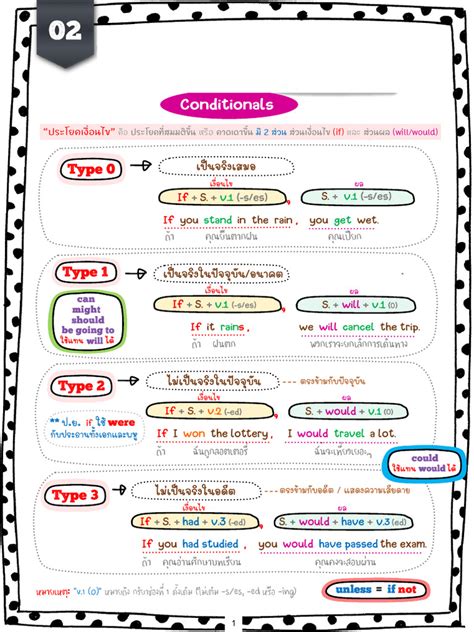 02
Conditionals
"ประโยคเงื่อนไข" คือ ประโยคที่สมมติขึ้น หรือ คาดเดาขึ้น มี 2 ส่วน ส่วนเงื่อนไข (if) และ ส่วนผล (will/would)
Type 0 เป็นจริงเสมอ
เงื่อนไข ผล
If + S. + v.1 (-s/es), S. + v.1 (-s/es)
If you stand in the rain, you get wet.
ถ้า คุณยืนตากฝน คุณเปียก
Type 1 เป็นจริงในปัจจุบัน/อนาคต
เงื่อนไข ผล
can
might
should
be going to
ใช้แทน will ได้
If + S. + v.1 (-s/es), S. + will + v.1 (0)
If it rains, we will cancel the trip.
ถ้า ฝนตก พวกเราจะยกเลิกการเดินทาง
Type 2 ไม่เป็นจริงในปัจจุบัน ตรงข้ามกับปัจจุบัน
เงื่อนไข ผล
If + S. + v.2 (-ed), S. + would + v.1 (0)
** ป.ย. if ใช้ were
กับประธานทั้งเอกและพหู
If I won the lottery, I would travel a lot.
ถ้า ฉันถูกลอตเตอรี่ ฉันจะเที่ยวเยอะๆ
could
ใช้แทน would ได้
Type 3 ไม่เป็นจริงในอดีต ตรงข้ามกับอดีต / แสดงความเสียดาย
เงื่อนไข ผล
If + S. + had + v.3 (-ed), S. + would + have + v.3 (-ed)
If you had studied, you would have passed the exam.
ถ้า คุณอ่านศึกษาบทเรียน คุณคงจะสอบผ่าน
หมายเหตุ: "v.1 (0)" หมายถึง กริยาช่องที่ 1 ดั้งเดิม (ไม่เติม -s/es, -ed หรือ -ing)
unless = if not
1